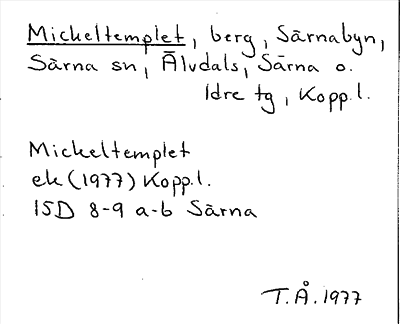 Mickeltemplet, berg, Särnabyn,
Särna sn, Älvdals, Särna o.
Idre tg, Kopp.l.
Mickeltemplet
ek (1977) Kopp.l.
15D 8-9 a-b Särna
T.Å. 1977